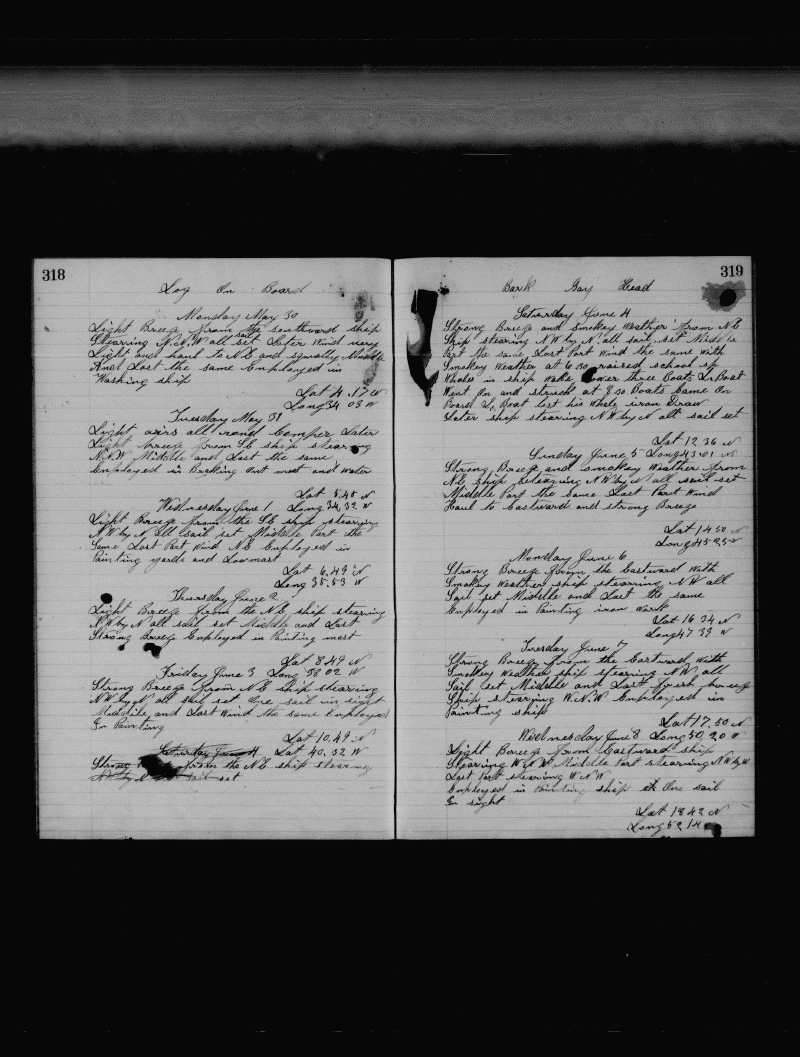 318
Log On Board
Monday May 30
Light Breeze from the southward ship
Stearing N.N.W all sail set Later Wind very
Light and haul to N E and squally Middle
And Last the same Employed in
Washing ship
Lat 4.17 N
Long 34 03 W
Tuesday May 31
Light airs all round Compass Later
Light breeze from SE ship stearing
N.N.W Middle and Last the same
Employed in Breaking Out meat and water
Lat 5.48 N
Wednesday June 1 Long 34,32 W
Light Breeze from the SE ship stearing
N W by N all sail set Middle Part the
Same Last Part Wind N E Employed in
Painting yards and Lowmast
Lat 6.49 N
Long 35.53 W
Thursday June 2
Light Breeze from the N E ship stearing
N.W by N all sail set Middle and Last
Strong Breeze Employed in Painting mast
Lat 8.49 N
Friday June 3 Long 38 02 W
Strong Breeze from N E ship stearing
N W by N all sail set One sail in sight
Middle and Last Wind the same Employed
In Painting
Lat 10.49 N
Saturday June 4 Lat 40.32 W
Strong from the N E ship stearing
N W by N sail set
319
Bark Gay Head
Saturday June 4
Strong Breeze and Smokey Weather from N E
Ship stearing N W by N. all sail set Middle
Part the same Last Part Wind the same With
Smokey Weather at 6.30 raised school of
Whales in ship wake Lower three Boats L. Boat
Went On and struck at 7.30 Boats Came On
Board L. Boat Lost his Whale iron Draw
Later ship stearing N W by N all sail set
Lat 12 36 N
Sunday June 5 Long 43.01 W
Strong Breeze and smokey Weather from
N E ship stearing N W by N all sail set
Middle Part the Same Last Part Wind
Haul to Eastward and strong Breeze
Lat 14 50 N
Long 45 25 W
Monday June 6
Strong Breeze from the Eastward With
Smokey Weather ship stearing N W all
Sail set Middle and Last the same
Employed in Painting iron Work
Lat 16 34 N
Long 47 39 W
Tuesday June 7
Strong Breeze from the Eastward With
Smokey Weather ship stearing N W all
Sail set Middle and Last fresh breeze
Ship stearing W.N.W Employed in
Painting ship
Lat 17.50 N
Wednesday June 8 Long 50.20 W
Light Breeze from Eastward ship
Stearing W N W Middle Part stearing N W by W
Last Part stearing W N W
Employed in Painting ship One sail
In sight
Lat 18 42 N
Long 52 14